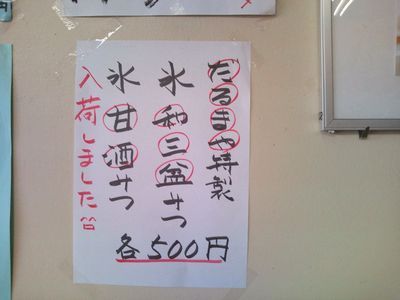 だるまや特製
氷和三盆みつ
氷甘酒みつ
各500円
入荷しました